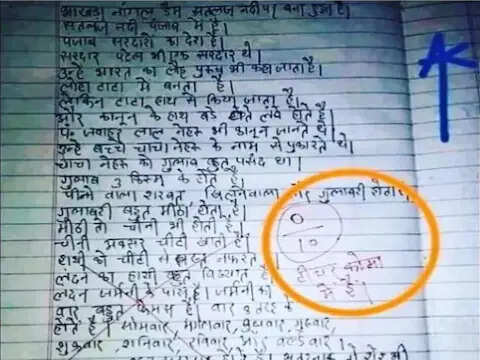 भाखड़ा नांगल डैम सतलुज नदी पर बना हुआ है।
सतलुज नदी पंजाब में है।
पंजाब सरदारों का देश है।
सरदार पटेल भी एक सरदार थे।
उन्हें भारत का लौह पुरुष भी कहा जाता है।
लोहा टाटा में बनता है।
लेकिन टाटा हाथ से किया जाता है।
और कानून के हाथ बड़े लंबे होते है
पं. जवाहर लाल नेहरू भी कानून जानते थे।
उन्हें बच्चे चाचा नेहरू के नाम से पुकारते थे।
चाचा नेहरू को गुलाब बहुत पसंद था।
गुलाब 3 किस्म के होते है।
पीने वाला शरबत और गुलाबरी होता
गुलाबरी बहुत मीठा होता है।
मीठी तो चीनी भी होती है।
चीनी अक्सर चींटी खाती है।
हाथी को चींटी से सख्त नफरत है।
लंदन का हाथी बहुत विख्यात है।
लंदन जर्मनी के पास है। जर्मनी का
वार बहुत फेमस है। वार 8 तरह के
होते है। सोमवार, मंगलवार, बुधवार, गुरुवार,
शुक्रवार, शनिवार, रविवार, और वर्ल्ड वार।
0
10
टीचर कोमा
में है।